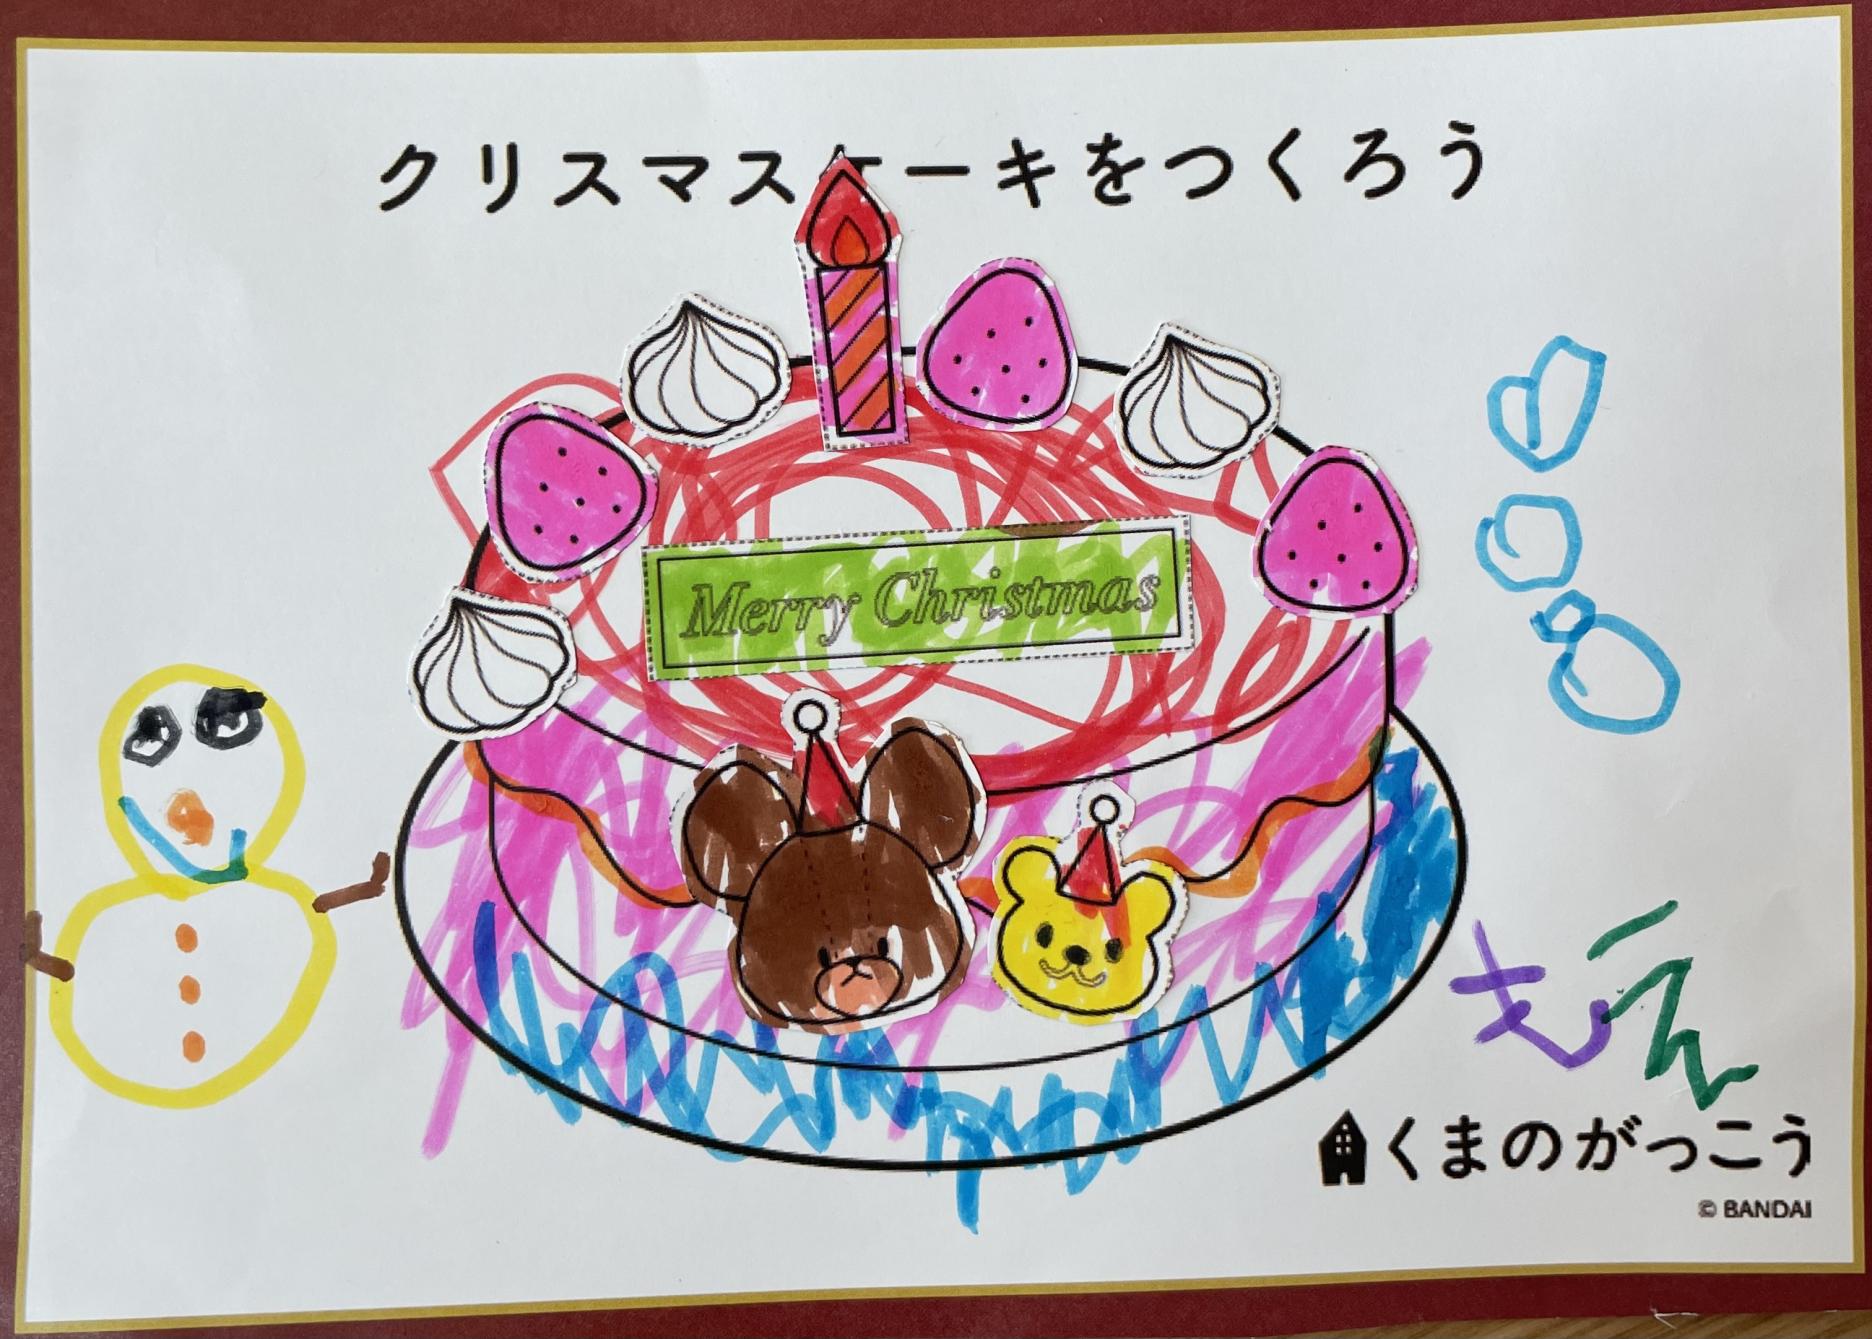 クリスマスケーキをつくろう
Merry Christmas
もえ
くまのがっこう
© BANDAI